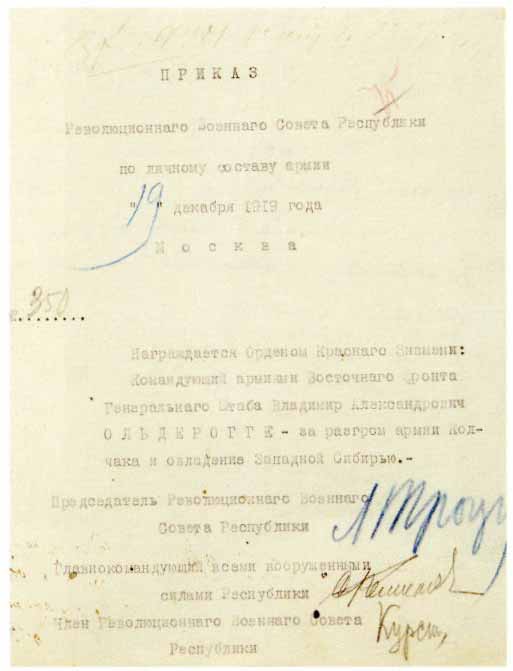 ПРИКАЗ
Революционнаго Военнаго Совета Республики
по личному составу армии
"19" декабря 1919 года
Москва
350
Награждается Орденом Краснаго Знамени:
Командующий армиями Восточнаго фронта
Генеральнаго Штаба Владимир Александрович
ОЛЬДЕРОГГЕ - за разгром армии Кол-
чака и овладение Западной Сибирью.-
Председатель Революционнаго Военнаго
Совета Республики
Л Троцк
Главнокомандующий всеми вооруженными
силами Республики
Член Революционнаго Военнаго Совета
Республики
Курск